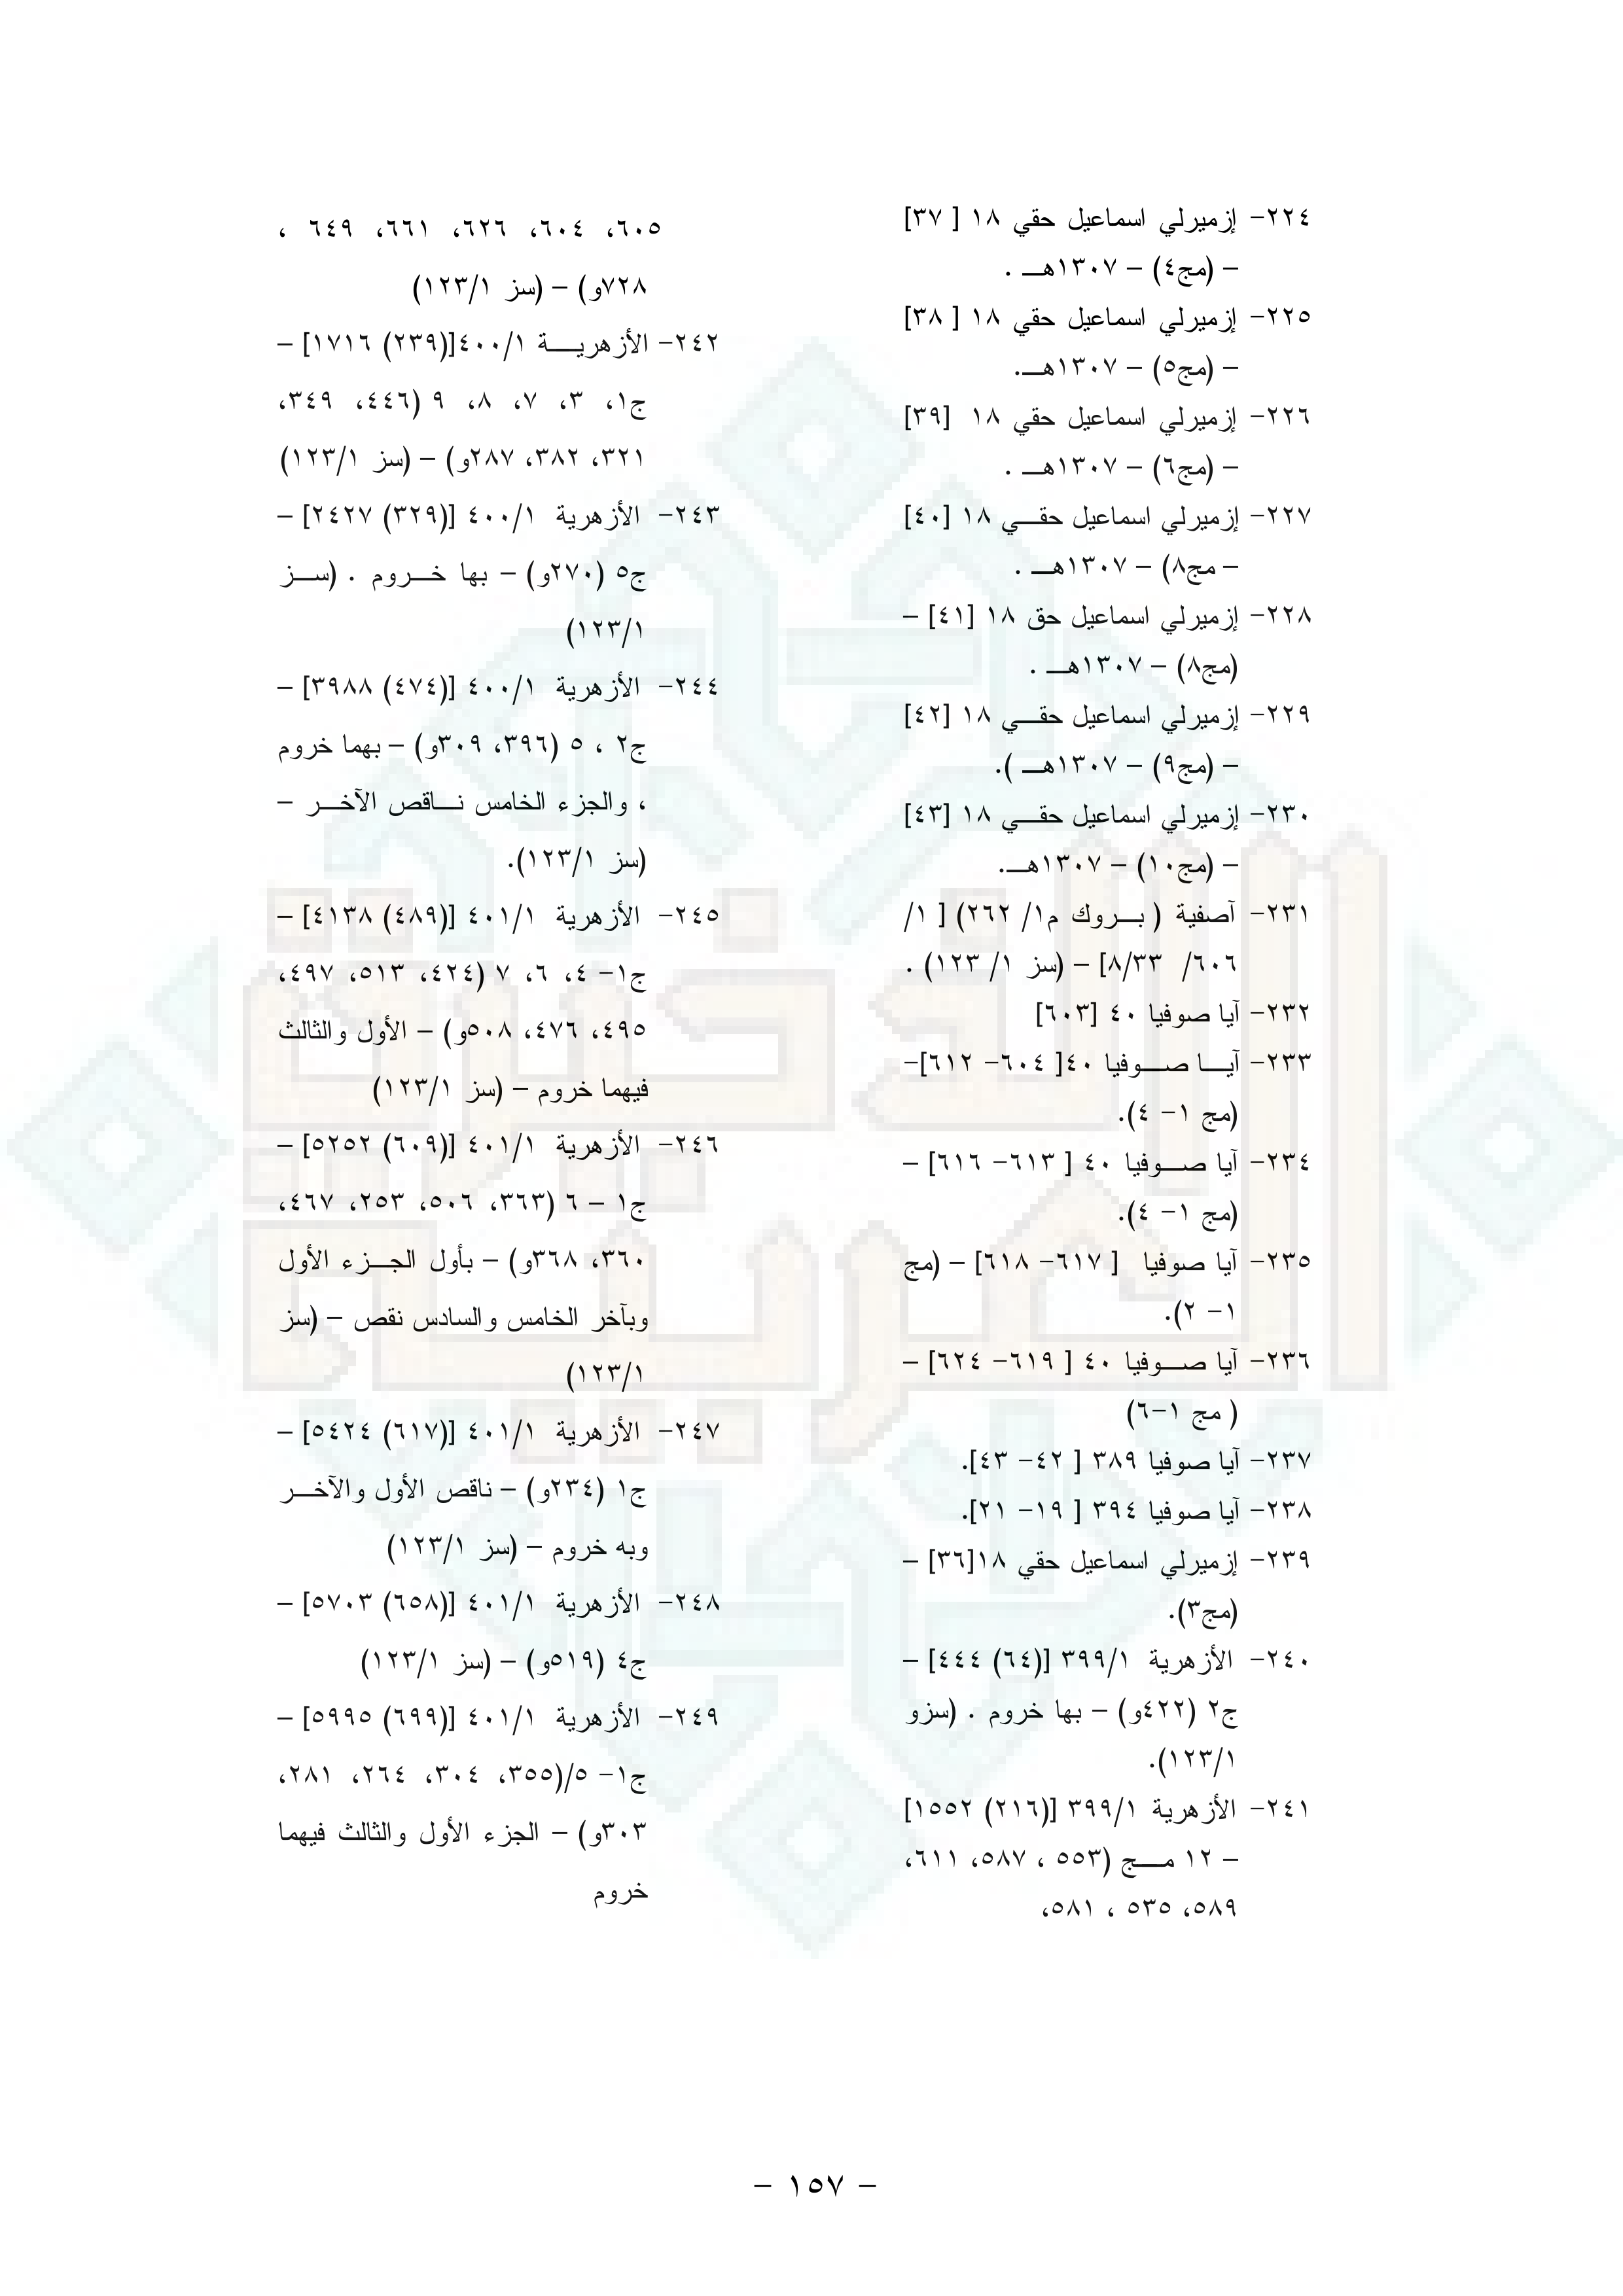 ٢٢٤- إزميرلي اسماعيل حقي ١٨ [ ٣٧]
– (مج٤) – ١٣٠٧هـ .
٢٢٥- إزميرلي اسماعيل حقي ١٨ [ ٣٨]
– (مج٥) – ١٣٠٧هـ.
٢٢٦- إزميرلي اسماعيل حقي ١٨ [٣٩]
– (مج٦) – ١٣٠٧هـ .
٢٢٧- إزميرلي اسماعيل حقي ١٨ [٤٠]
– مج٨) – ١٣٠٧هـ .
٢٢٨- إزميرلي اسماعيل حق ١٨ [٤١] –
(مج٨) – ١٣٠٧هـ .
٢٢٩- إزميرلي اسماعيل حقي ١٨ [٤٢]
– (مج٩) – ١٣٠٧هـ ).
٢٣٠- إزميرلي اسماعيل حقي ١٨ [٤٣]
– (مج١٠) – ١٣٠٧هـ.
٢٣١- آصفية ( بروك م١/ ٢٦٢) [ ١/
٦٠٦/ ٨/٣٣] – (سز ١/ ١٢٣) .
٢٣٢- آيا صوفيا ٤٠ [٦٠٣]
٢٣٣- آيا صوفيا ٤٠[ ٦٠٤- ٦١٢]-
(مج ١- ٤).
٢٣٤- آيا صوفيا ٤٠ [ ٦١٣- ٦١٦] –
(مج ١- ٤).
٢٣٥- آيا صوفيا [ ٦١٧- ٦١٨] – (مج
١- ٢).
٢٣٦- آيا صوفيا ٤٠ [ ٦١٩- ٦٢٤] –
( مج ١-٦)
٢٣٧- آيا صوفيا ٣٨٩ [ ٤٢- ٤٣].
٢٣٨- آيا صوفيا ٣٩٤ [ ١٩- ٢١].
٢٣٩- إزميرلي اسماعيل حقي ١٨[٣٦] –
(مج٣).
٢٤٠- الأزهرية ٣٩٩/١ [(٦٤) ٤٤٤] –
ج٢ (٤٢٢و) – بها خروم . (سزو
١٢٣/١).
٢٤١- الأزهرية ٣٩٩/١ [(٢١٦) ١٥٥٢]
– ١٢ مج (٥٥٣ ، ٥٨٧، ٦١١،
٥٨٩، ٥٣٥ ، ٥٨١،
٦٠٥، ٦٠٤، ٦٢٦، ٦٦١، ٦٤٩ ،
٧٢٨و) – (سز ١٢٣/١)
٢٤٢- الأزهرية ٤٠٠/١[(٢٣٩) ١٧١٦] –
ج١، ٣، ٧، ٨، ٩ (٤٤٦، ٣٤٩،
٣٢١، ٣٨٢، ٢٨٧و) – (سز ١٢٣/١)
٢٤٣- الأزهرية ٤٠٠/١ [(٣٢٩) ٢٤٢٧] –
ج٥ (٢٧٠و) – بها خروم . (سز
١٢٣/١)
٢٤٤- الأزهرية ٤٠٠/١ [(٤٧٤) ٣٩٨٨] –
ج٢ ، ٥ (٣٩٦، ٣٠٩و) – بهما خروم
، والجزء الخامس ناقص الآخر –
(سز ١٢٣/١).
٢٤٥- الأزهرية ٤٠١/١ [(٤٨٩) ٤١٣٨] –
ج١- ٤، ٦، ٧ (٤٢٤، ٥١٣، ٤٩٧،
٤٩٥، ٤٧٦، ٥٠٨و) – الأول والثالث
فيهما خروم – (سز ١٢٣/١)
٢٤٦- الأزهرية ٤٠١/١ [(٦٠٩) ٥٢٥٢] –
ج١ – ٦ (٣٦٣، ٥٠٦، ٢٥٣، ٤٦٧،
٣٦٠، ٣٦٨و) – بأول الجزء الأول
وبآخر الخامس والسادس نقص – (سز
١٢٣/١)
٢٤٧- الأزهرية ٤٠١/١ [(٦١٧) ٥٤٢٤] –
ج١ (٢٣٤و) – ناقص الأول والآخر
وبه خروم – (سز ١٢٣/١)
٢٤٨- الأزهرية ٤٠١/١ [(٦٥٨) ٥٧٠٣] –
ج٤ (٥١٩و) – (سز ١٢٣/١)
٢٤٩- الأزهرية ٤٠١/١ [(٦٩٩) ٥٩٩٥] –
ج١- ٥/(٣٥٥، ٣٠٤، ٢٦٤، ٢٨١،
٣٠٣و) – الجزء الأول والثالث فيهما
خروم
– ١٥٧ –